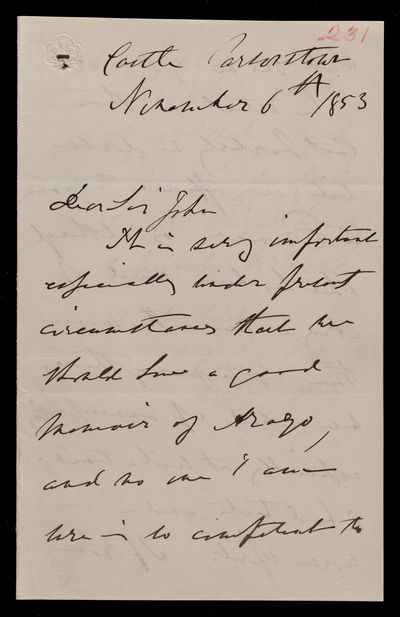 231
Castle Parsonstown
November 6th /1853
Dear Sir John
It is very important
especially under present
circumstances that we
should have a good
memoir of Arago,
and no one I am
sure is so competent to